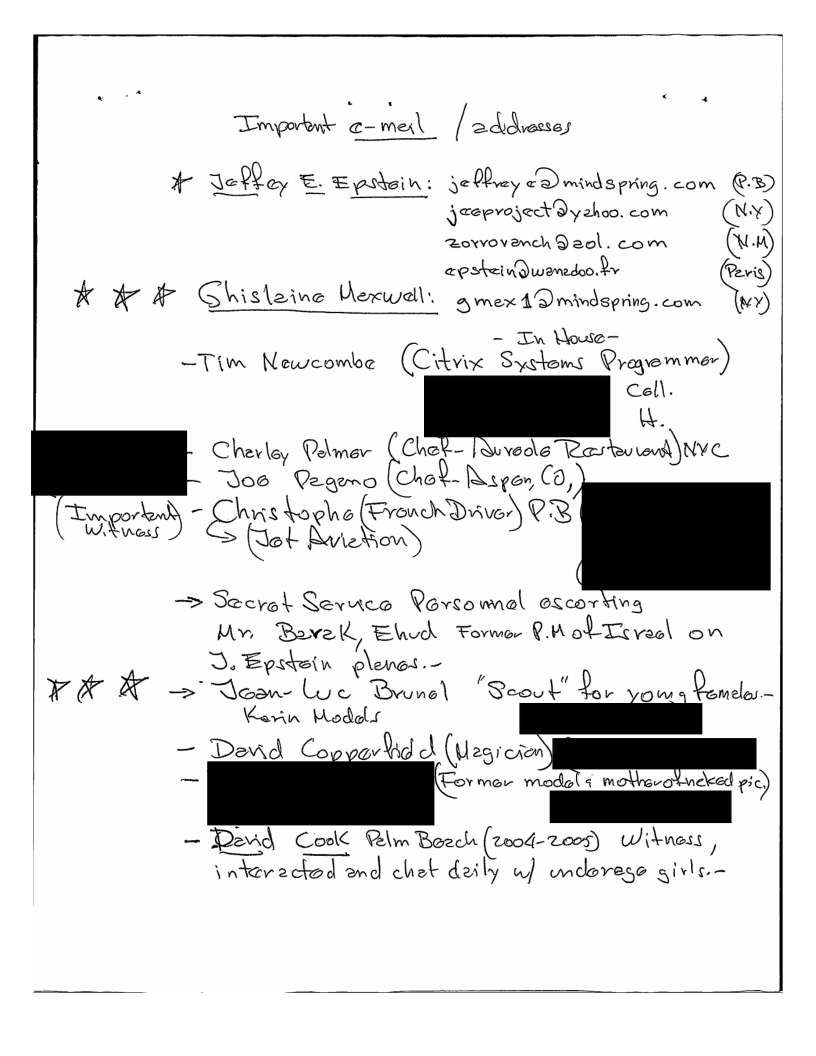 Important e-mail / addresses
* Jeffey E. Epstein: jeffreye@mindspring.com (P.B)
jeeproject@yahoo.com (N.Y)
zorroranch@aol.com (N.M)
epstein@wanadoo.fr (Paris)
* * * Ghislaine Maxwell: gmax1@mindspring.com (NY)
- In House -
- Tim Newcombe (Citrix Systems Programmer)
Cell.
H.
- Charley Palmer (Chef-Aureole Restaurant) NYC
- Joe Pagano (Chef-Aspen, CO,)
(Important Witness) - Christophe (French Driver) P.B
↳ (Jet Aviation)
→ Secret Service Personnel escorting
Mr. Barak, Ehud Former P.M of Israel on
J. Epstein planes.-
* * * → Jean-Luc Brunel "Scout" for young females.-
Karin Models
- David Copperfield (Magician)
- (Former model & mother of naked pic.)
- David Cook Palm Beach (2004-2005) Witness,
interacted and chat daily w/ underage girls.-